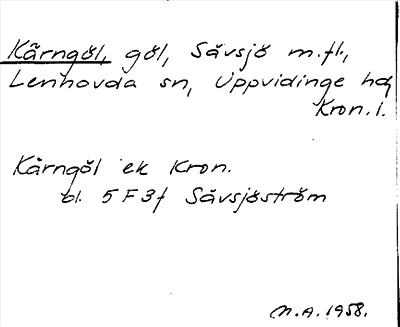 Kärngöl, göl, Sävsjö m.fl.,
Lenhovda sn, Uppvidinge hd,
Kron. l.
Kärngöl ek Kron.
bl. 5 F 3 f Sävsjöström
M.A. 1958.